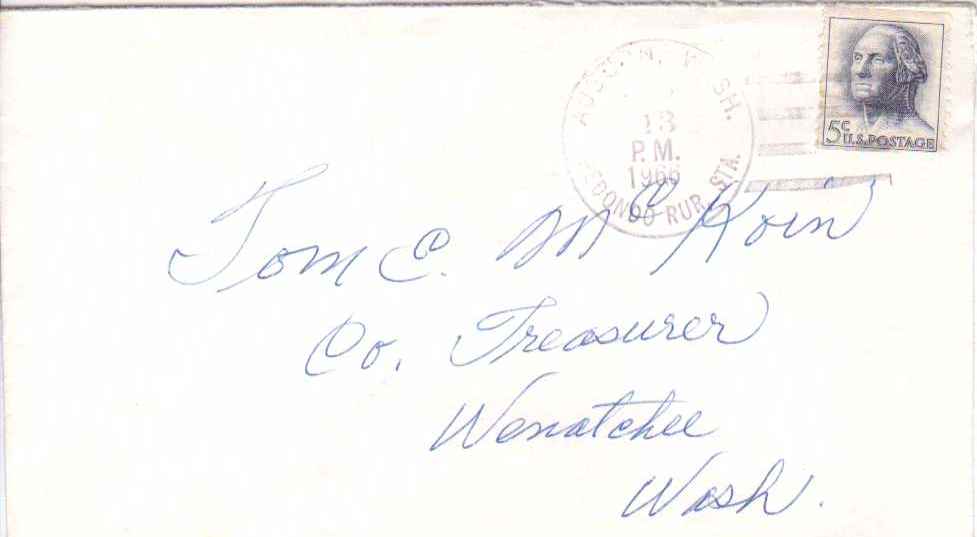 AUBURN, WASH.
13
P.M.
1966
REDONDO RUR. STA.
5c
U.S. POSTAGE
Tom C. McKoin
Co. Treasurer
Wenatchee
Wash.